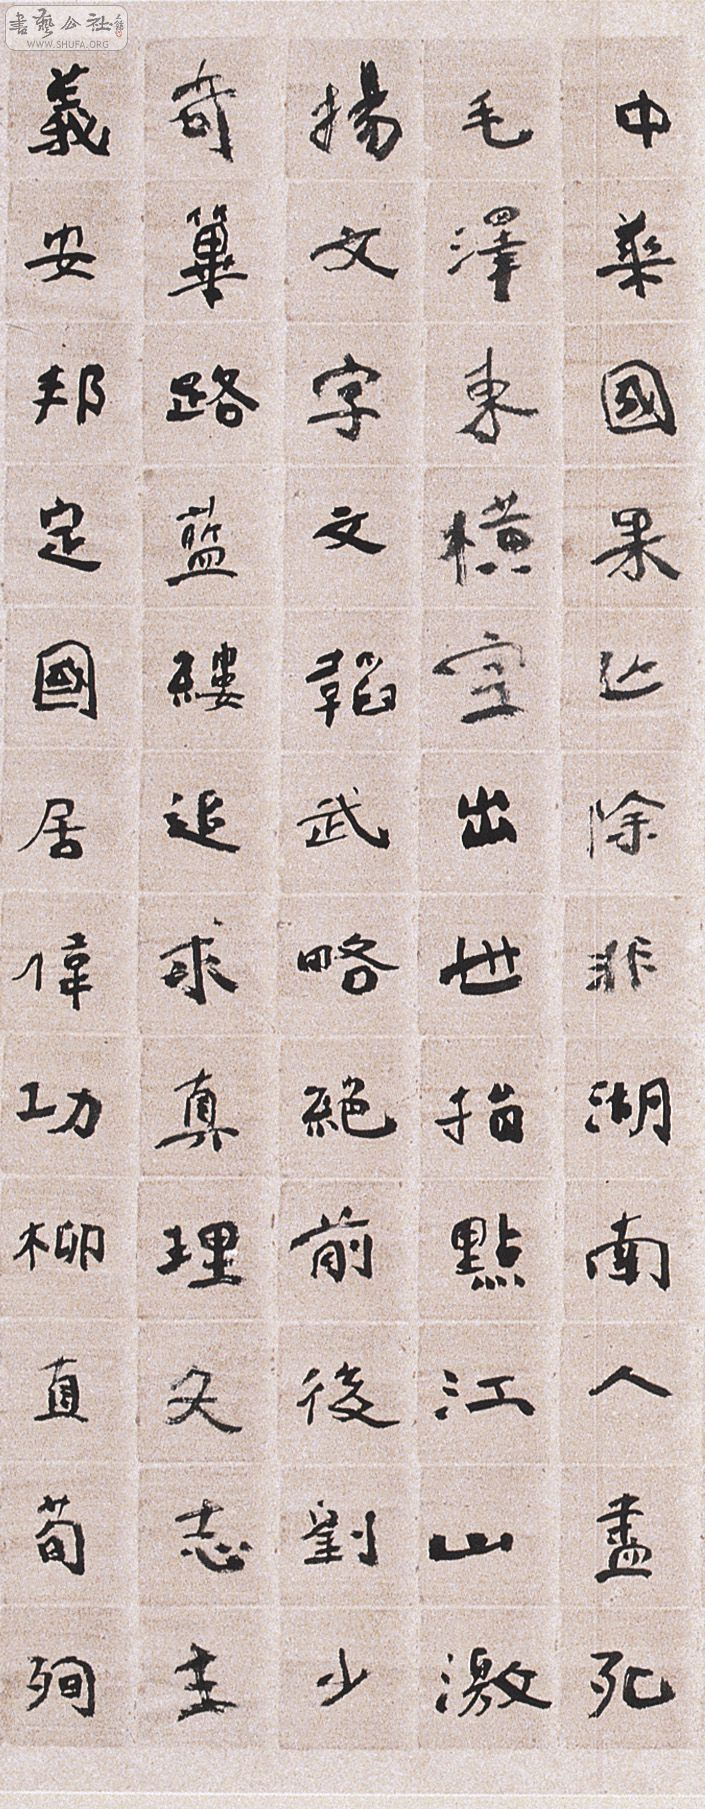 書藝公社
WWW.SHUFA.ORG
中華國果亡除非湖南人盡死
毛澤東橫空出世指點江山激
揚文字文韜武略絕前後劉少
奇篳路藍縷追求真理志主
義安邦定國居偉功柳直荀殉